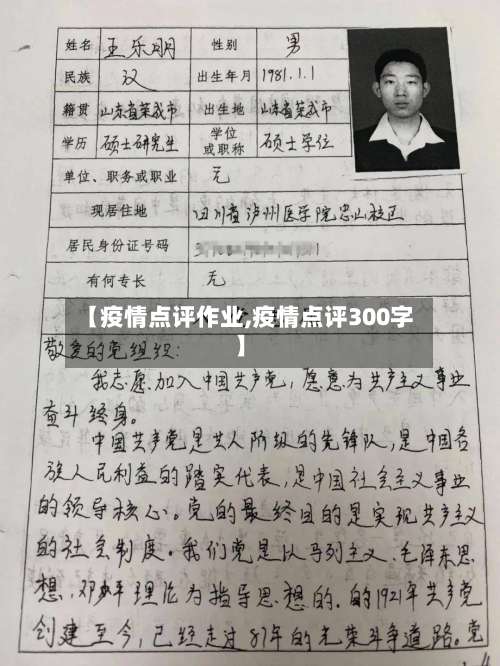 姓名 王乐明 性别 男
民族 汉 出生年月 1981.1.1
籍贯 山东省荣成市 出生地 山东省荣成市
学历 硕士研究生 学位或职称 硕士学位
单位、职务或职业 无
现居住地 四川省泸州医学院忠山校区
居民身份证号码
有何专长 无
【疫情点评作业,疫情点评300字
】
敬爱的党组织:
我志愿加入中国共产党,愿意为共产主义事业
奋斗终身。
中国共产党是工人阶级的先锋队,是中国各
族人民利益的踏实代表,是中国社会主义事业
的领导核心。党的最终目的是实现共产主义
的社会制度。我们党是以马列主义、毛泽东思
想,邓小平理论为指导思想的。的1921年共产党
创建至今,已经走过87年的光荣斗争道路。党